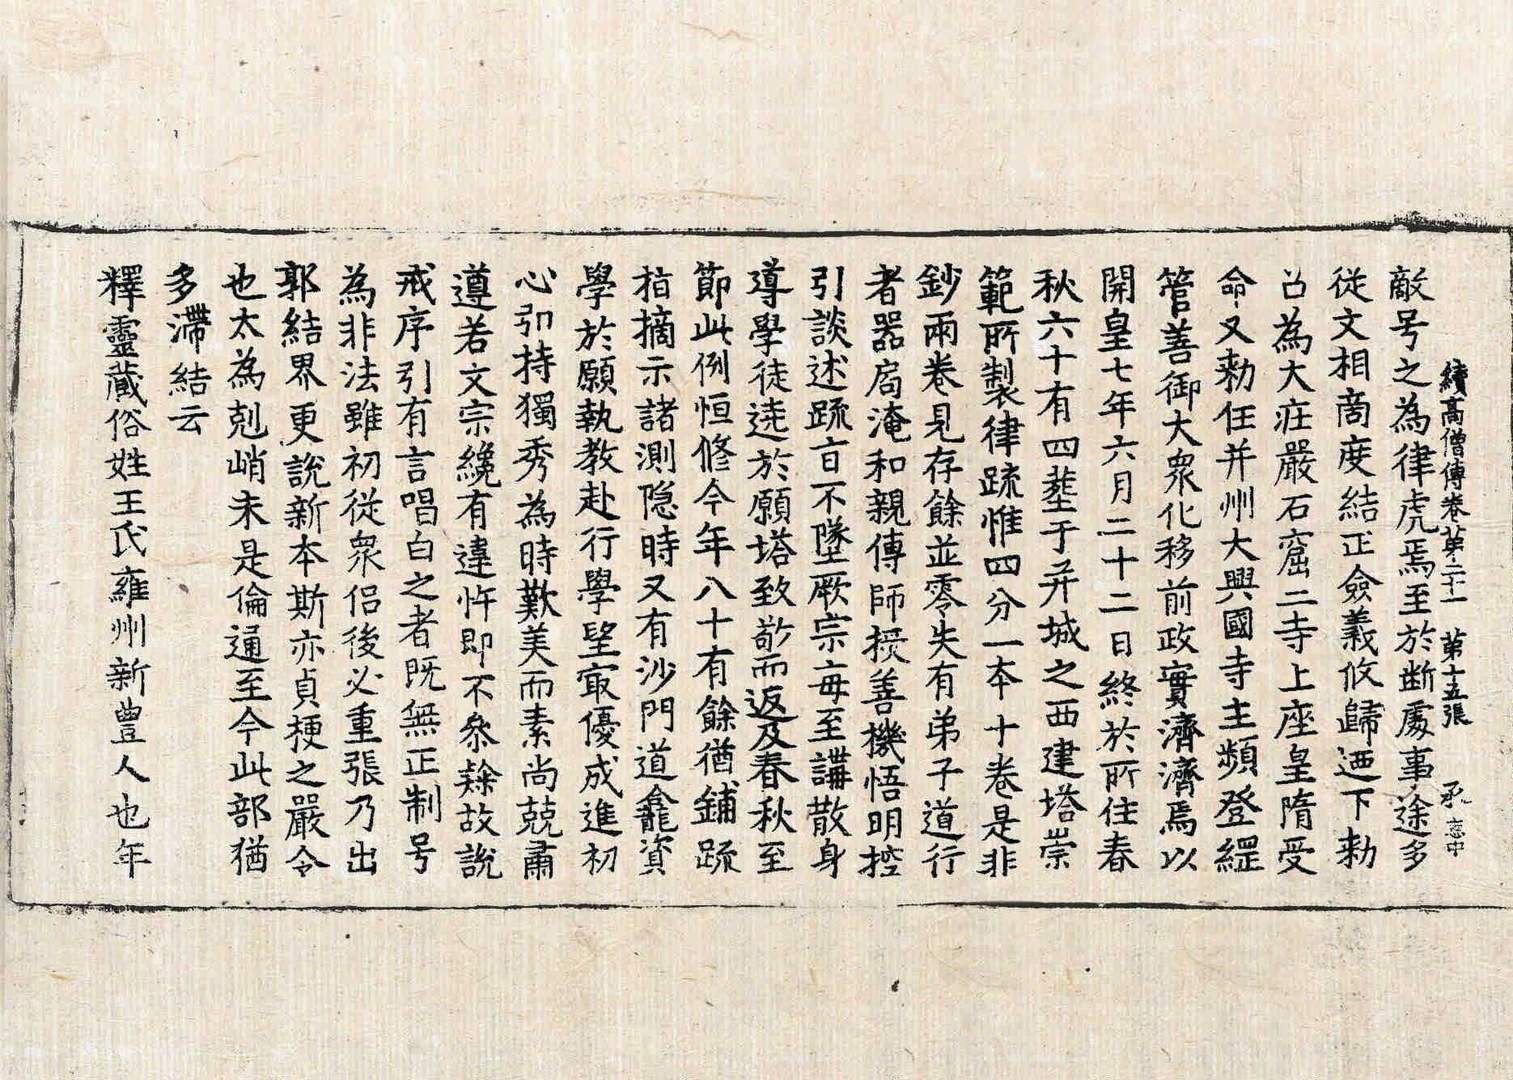 續高僧傳卷第二十一　第十五張　承
敵号之為律虎焉至於断處事途多
從文相商度結正僉義攸歸迺下勑
召為大㽵嚴石窟二寺上座皇隋受
命又勑任并州大興國寺主頻登緼
管善御大衆化移前政實濟濟焉以
開皇七年六月二十二日終於所住春
秋六十有四塟于并城之西建塔崇
範所製律䟽惟四分一本十卷是非
鈔兩卷見存餘並零失有弟子道行
者器局淹和親傳師授善機悟明控
引談述䟽㫖不墜厥宗每至講散身
導學徒遶於願塔致敬而返及春秋至
節此例恒修今年八十有餘猶鋪䟽
指摘示諸測隐時又有沙門道龕資
學於願執教赴行學堅㝡優成進初
心引持獨秀為時歎美而素尚兢肅
遵若文宗纔有違忤即不叅繇故說
戒序引有言唱白之者既無正制号
為非法雖初從衆侶後必重張乃出
郭結界更說新本斯亦貞梗之嚴令
也太為剋峭未是倫通至今此部猶
多滯結云
釋靈藏俗姓王氏雍州新豊人也年